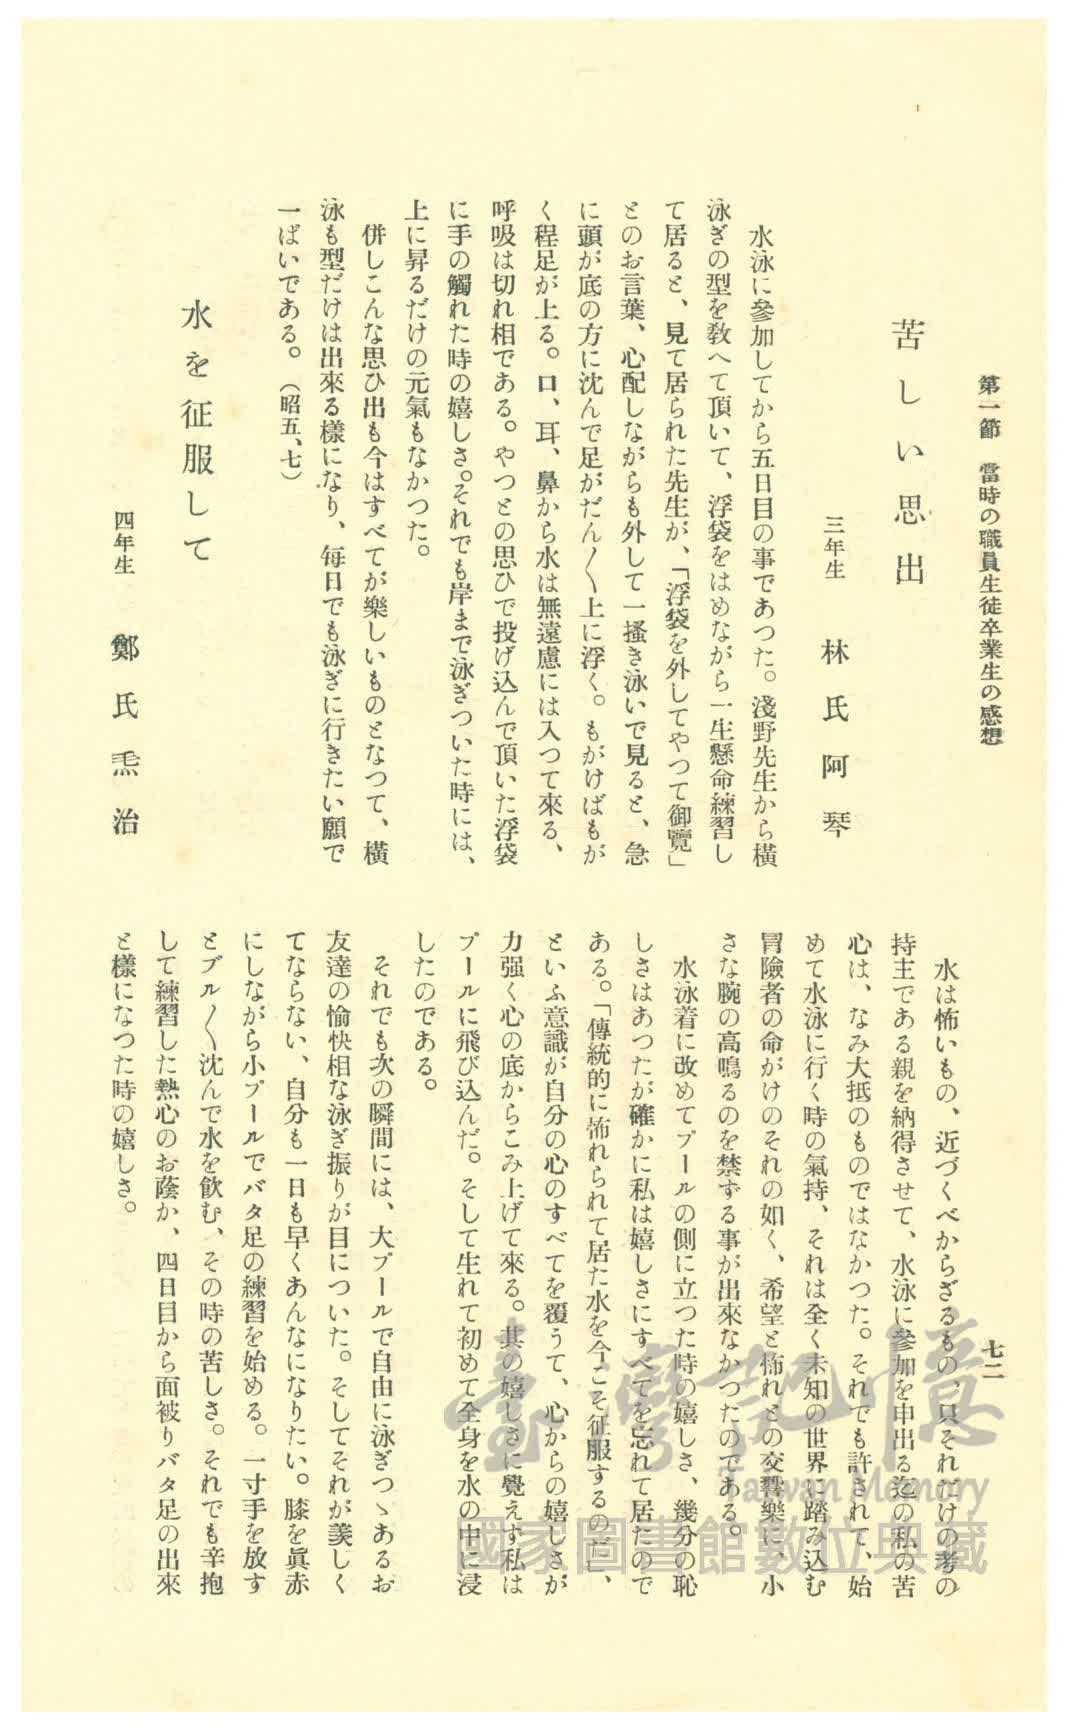 第一節　當時の職員生徒卒業生の感想
七二
苦しい思出
三年生　林氏阿琴
水泳に參加してから五日目の事であつた。淺野先生から橫
泳ぎの型を敎へて頂いて、浮袋をはめながら一生懸命練習し
て居ると、見て居られた先生が、「浮袋を外してやつて御覽」
とのお言葉、心配しながらも外して一搔き泳いで見ると、急
に頭が底の方に沈んで足がだん〳〵上に浮く。もがけばもが
く程足が上る。口、耳、鼻から水は無遠慮には入つて來る、
呼吸は切れ相である。やつとの思ひで投げ込んで頂いた浮袋
に手の觸れた時の嬉しさ。それでも岸まで泳ぎついた時には、
上に昇るだけの元氣もなかつた。
併しこんな思ひ出も今はすべてが樂しいものとなつて、橫
泳も型だけは出來る樣になり、每日でも泳ぎに行きたい願で
一ぱいである。（昭五、七）
水を征服して
四年生　鄭氏𤆬治
水は怖いもの、近づくべからざるもの、只それだけの考の
持主である親を納得させて、水泳に參加を申出る迄の私の苦
心は、なみ大抵のものではなかつた。それでも許されて、始
めて水泳に行く時の氣持、それは全く未知の世界に踏み込む
冒險者の命がけのそれの如く、希望と怖れとの交響樂に、小
さな腕の高鳴るのを禁ずる事が出來なかつたのである。
水泳着に改めてプールの側に立つた時の嬉しさ、幾分の恥
しさはあつたが確かに私は嬉しさにすべてを忘れて居たので
ある。「傳統的に怖れられて居た水を今こそ征服するのだ」、
といふ意識が自分の心のすべてを覆うて、心からの嬉しさが
力强く心の底からこみ上げて來る。其の嬉しさに覺えず私は
プールに飛び込んだ。そして生れて初めて全身を水の中に浸
したのである。
それでも次の瞬間には、大プールで自由に泳ぎつゝあるお
友達の愉快相な泳ぎ振りが目についた。そしてそれが羨しく
てならない、自分も一日も早くあんなになりたい。膝を眞赤
にしながら小プールでバタ足の練習を始める。一寸手を放す
とブル〳〵沈んで水を飮む、その時の苦しさ。それでも辛抱
して練習した熱心のお蔭か、四日目から面被りバタ足の出來
と樣になつた時の嬉しさ。
臺灣記憶
Taiwan Memory
國家圖書館數位典藏